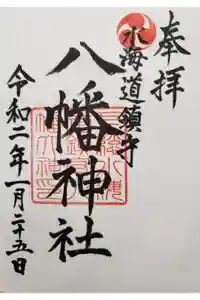 奉拝
水海道鎮守
八幡神社
令和二年一月二十五日